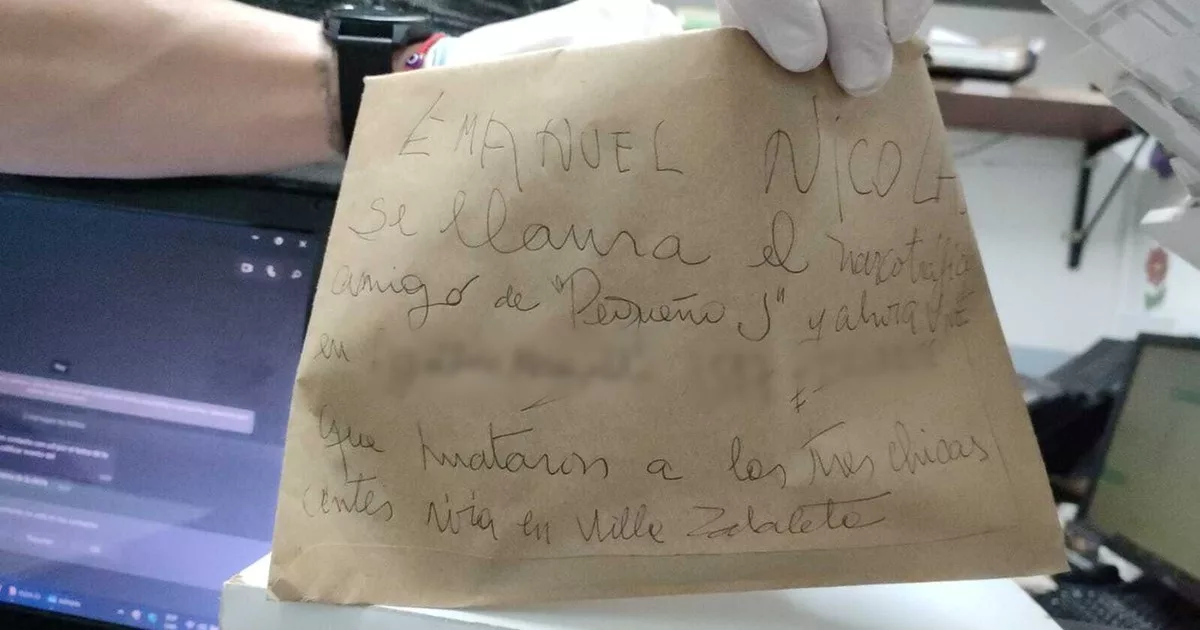 EMANUEL NICOLA
se llama el narcotrafica
amigo de "Pequeño J" y ahora vive
en
que mataron a las tres chicas
antes vivia en Villa Zabaleta